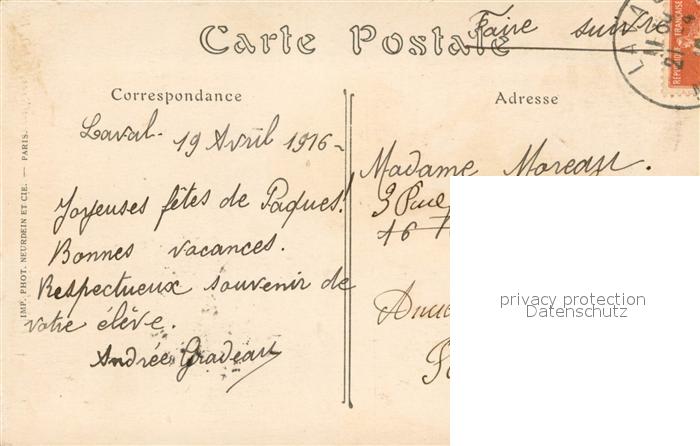 Faire suivre
Carte Postale
LAVA
REPUBLIQUE FRANÇAISE
Correspondance
Adresse
Laval. 19 Avril 1916 -
Joyeuses fêtes de Pâques!
Bonnes vacances.
Respectueux souvenir de
votre élève.
Andrée Gradeau
Madame Moreau.
3 Rue
16
IMP. PHOT. NEURDEIN ET CIE. — PARIS.
privacy protection
Datenschutz